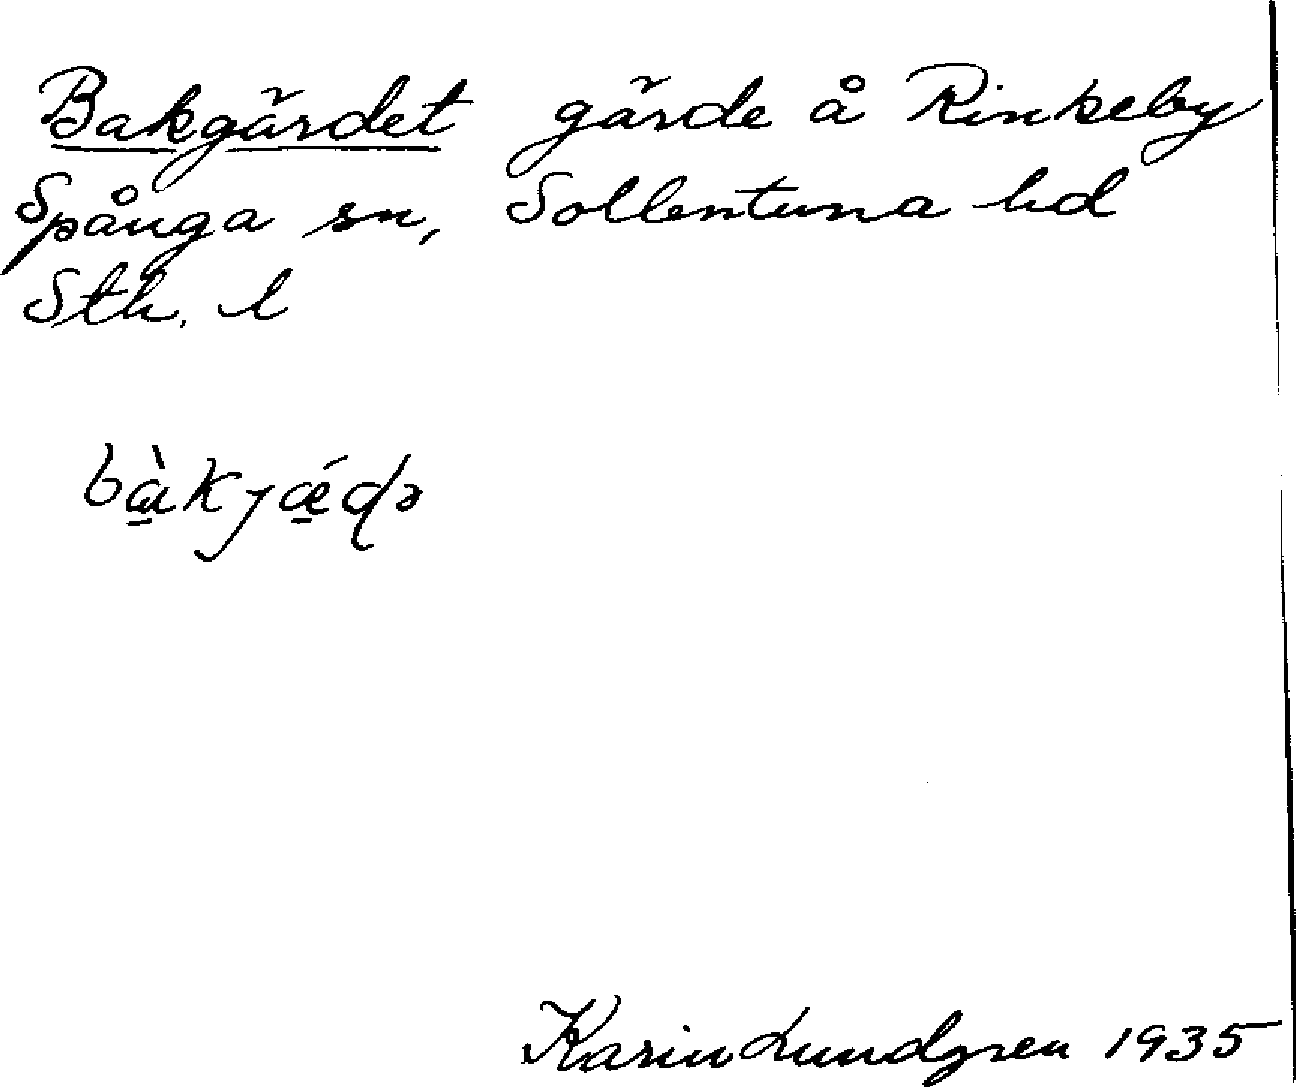 Bakgärdet gärde å Rinkeby
Spånga sn, Sollentuna hd
Sth. l
bɑ̱̀kjǽ̱ɖə
Karin Lundgren 1935